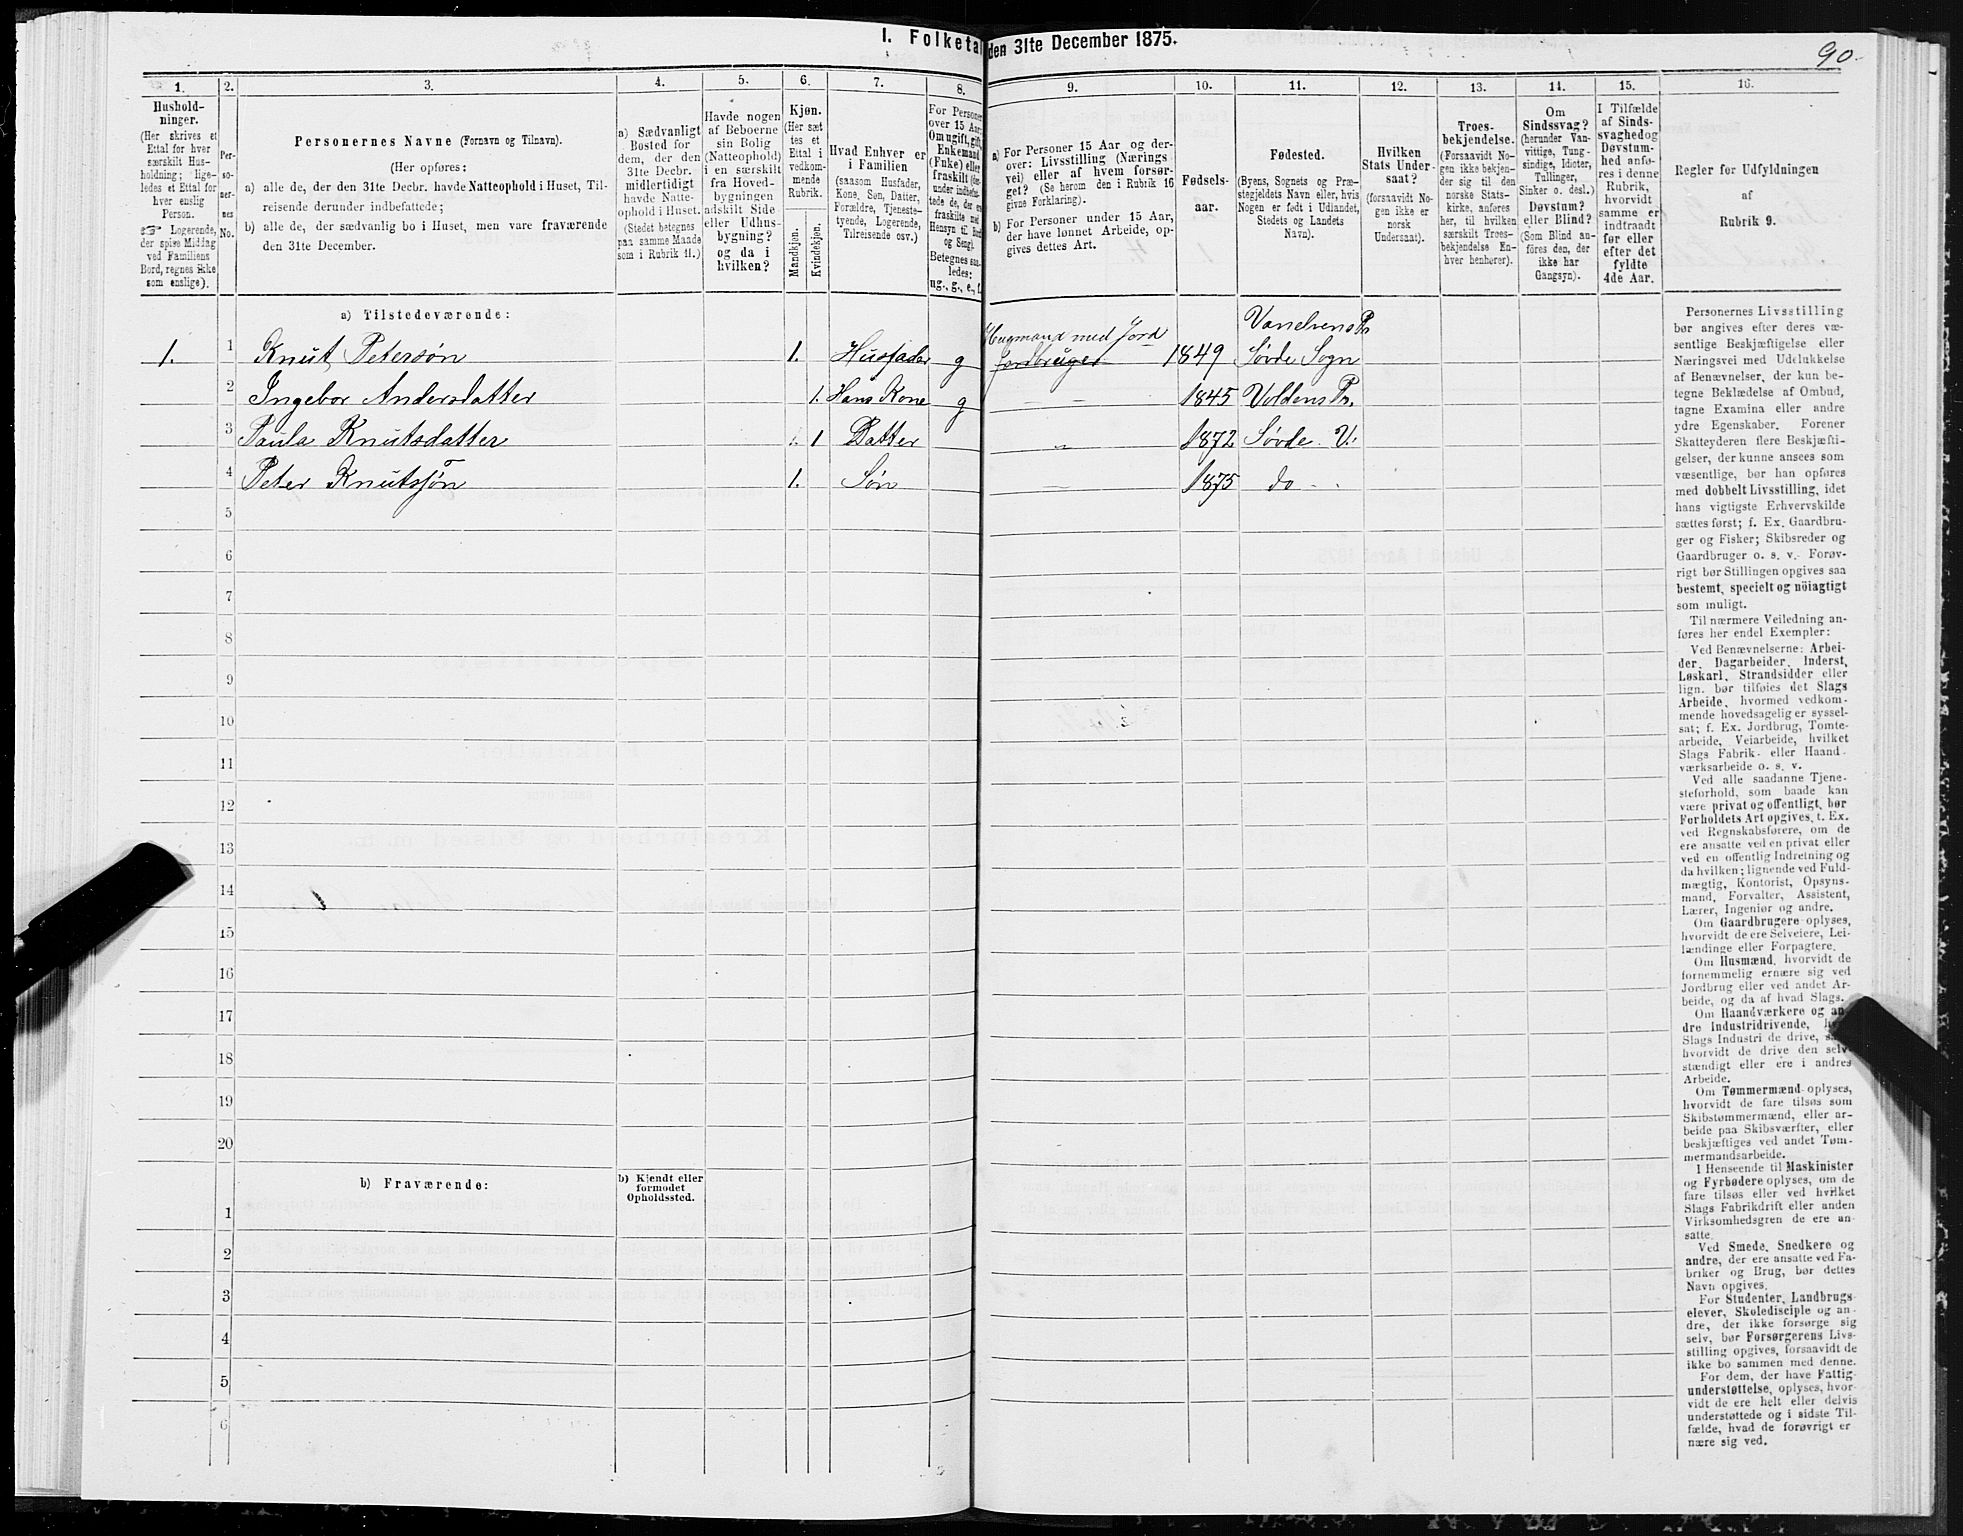 I. Folketal den 31te December 1875.
90.
1.
Hushold-
ninger.
(Her skrives et
Ettal for hver
særskilt Hus-
holdning; lige-
ledes et Ettal for
hver enslig
Person.
☞ Logerende,
der spise Middag
ved Familiens
Bord, regnes ikke
som enslige).
2.
Per-
so-
ner-
nes
No.
3.
Personernes Navne (Fornavn og Tilnavn).
(Her opføres:
a) alle de, der den 31te Decbr. havde Natteophold i Huset, Til-
reisende derunder indbefattede;
b) alle de, der sædvanlig bo i Huset, men vare fraværende
den 31te December.
4.
a) Sædvanligt
Bosted for
dem, der den
31te Decbr.
midlertidigt
havde Natte-
ophold i Huset.
(Stedet betegnes
paa samme Maade
som i Rubrik 11.)
5.
Havde nogen
af Beboerne
sin Bolig
(Natteophold)
i en særskilt
fra Hoved-
bygningen
adskilt Side
eller Udhus-
bygning?
og da i
hvilken?
6.
Kjøn.
(Her sæt
et
Ettal i
vedkom-
mende
Rubrik.
Mandkjøn.
Kvindekjøn.
7.
Hvad Enhver er
i Familien
(saasom Husfader,
Kone, Søn, Datter,
Forældre, Tjeneste-
tyende, Logerende,
Tilreisende osv.)
8.
For Personer
over 15 Aar:
Om ugift, gift,
Enkemand
(Enke) eller
fraskilt (her-
under indbefat-
tede de, der ere
fraskilte med
Hensyn til Bord
og Seng).
Betegnes saa-
ledes:
ug., g., e., f.
9.
a) For Personer 15 Aar og der-
over: Livsstilling (Nærings
vei) eller af hvem forsør-
get? (Se herom den i Rubrik 16
givne Forklaring).
b) For Personer under 15 Aar,
der have lønnet Arbeide, op-
gives dettes Art.
10.
Fødsels-
aar.
11.
Fødested.
(Byens, Sognets og Præ-
stegjeldets Navn eller, hvis
Nogen er født i Udlandet,
Stedets og Landets
Navn).
12.
Hvilken
Stats Under-
saat?
(forsaavidt No-
gen ikke er
norsk
Undersaat).
13.
Troes-
bekjendelse.
(Forsaavidt No-
gen ikke bekjen-
der sig til den
norske Stats-
kirke, anføres
her, til hvilken
særskilt Troes-
bekjendelse En-
hver henhører).
14.
Om
Sindssvag?
(herunder Van-
vittige, Tung-
sindige, Idioter,
Tullinger,
Sinker o. desl.)
Døvstum?
eller Blind?
(Som Blind an-
føres den, der
ikke har
Gangsyn).
15.
I Tilfælde
af Sinds-
svaghed og
Døvstum-
hed anfø-
res i denne
Rubrik,
hvorvidt
samme er
indtraadt
før eller
efter det
fyldte
4de Aar.
16.
Regler for Udfyldningen
af
Rubrik 9.
a) Tilstedeværende:
Vanelvens Pr
Husmand med Jord
1. 1 Knut Petersøn 1. Husfader g Jordbruger 1849 Søvde Sogn
2 Ingebor Andersdatter 1. Hans Kone g — — 1845 Voldens Pr.
3 Paula Knutsdatter 1 Datter „ 1872 Søvde V.
4 Peter Knutssøn 1. Søn — 1875 do
5
6
7
8
9
10
11
12
13
14
15
16
17
18
19
20
b) Fraværende:
b) Kjendt eller
formodet
Opholdssted.
1
2
3
4
5
6
Personernes Livsstilling
bør angives efter deres væ-
sentlige Beskjæftigelse eller
Næringsvei med Udelukkelse
af Benævnelser, der kun be-
tegne Beklædelse af Ombud,
tagne Examina eller andre
ydre Egenskaber. Forener
Skatteyderen flere Beskjæfti-
gelser, der kunne ansees som
væsentlige, bør han opføres
med dobbelt Livsstilling, idet
hans vigtigste Erhvervskilde
sættes først; f. Ex. Gaardbru-
ger og Fisker; Skibsreder og
Gaardbruger o. s. v. Forøv-
rigt bør Stillingen opgives saa
bestemt, specielt og nöiagtigt
som muligt.
Til nærmere Veiledning an-
føres her endel Exempler:
Ved Benævnelserne: Arbei-
der, Dagarbeider, Inderst,
Løskarl, Strandsidder eller
lign. bør tilføies det Slags
Arbeide, hvormed vedkom-
mende hovedsagelig er syssel-
sat; f. Ex. Jordbrug, Tomte-
arbeide, Veiarbeide, hvilket
Slags Fabrik- eller Haand-
værksarbeide o. s. v.
Ved alle saadanne Tjene-
steforhold, som baade kan
være privat og offentligt, bør
Forholdets Art opgives, t. Ex.
ved Regnskabsførere, om de
ere ansatte ved en privat eller
ved en offentlig Indretning og
da hvilken; lignende ved Fuld-
mægtig, Kontorist, Opsyns-
mand, Forvalter, Assistent,
Lærer, Ingeniør og andre.
Om Gaardbrugere oplyses,
hvorvidt de ere Selveiere, Lei-
lændinge eller Forpagtere.
Om Husmænd, hvorvidt de
fornemmelig ernære sig ved
Jordbrug eller ved andet Ar-
beide, og da af hvad Slags.
Om Haandværkere og an-
dre Industridrivende,
Slags Industri de drive,
hvorvidt de drive den selv-
stændigt eller ere i andres
Arbeide.
Om Tømmermænd oplyses,
hvorvidt de fare tilsøs som
Skibstømmermænd, eller ar-
beide paa Skibsværfter, eller
beskjæftiges ved andet Tøm-
mermandsarbeide.
I Henseende til Maskinister
og Fyrbødere oplyses, om de
fare tilsøs eller ved hvilket
Slags Fabrikdrift eller anden
Virksomhedsgren de ere an-
satte.
Ved Smede, Snedkere og
andre, der ere ansatte ved Fa-
briker og Brug, bør dettes
Navn opgives.
For Studenter, Landbrugs-
elever, Skoledisciple og an-
dre, der ikke forsørge sig
selv, bør Forsørgerens Livs-
stilling opgives, forsaavidt de
ikke bo sammen med denne.
For dem, der have Fattig-
understøttelse, oplyses, hvor-
vidt de ere helt eller delvis
understøttede og i sidste Til-
fælde, hvad de forøvrigt er-
nære sig ved.